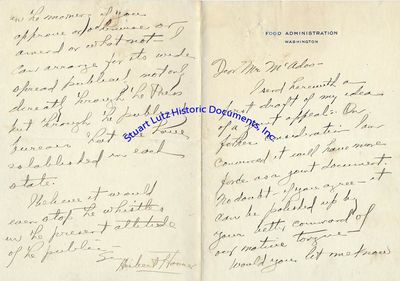 FOOD ADMINISTRATION
WASHINGTON
Dear Mr. McAdoo -
I send herewith a
first draft of my idea
of a joint appeal. On
further consideration I am
convinced it will have more
force as a joint document.
No doubt if you agree - it
can be polished up by
your better command of
our native tongue -
Would you let me know
in the morning if you
approve or otherwise or
amend or what not I
can arrange for its wide
spread publicity not only
directly through the Press
but through the publicity
bureaus that we have
established in each
state.
I believe it would
even stop the whistles
in the present attitude
of the public -
Herbert Hoover
Stuart Lutz Historic Documents, Inc.